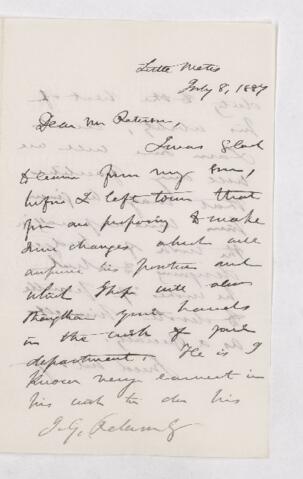 Little Metis
July 8, 1887
Dear Mr Peterson,
I was glad
to learn from my son,
before I left town that
you are proposing to make
some changes which will
improve his position and
which I hope will also
strengthen your hands
in the work of your
department. He is I
know very earnest in
his wish to do his